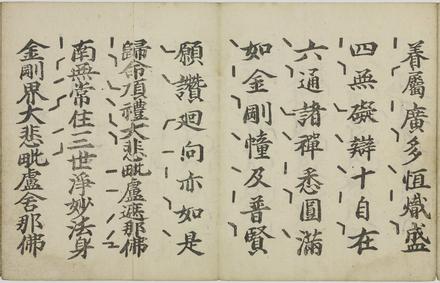 眷屬廣多恒熾盛
四無礙辯十自在
六通諸禪悉圓滿
如金剛幢及普賢
願讚廻向亦如是
歸命頂禮大悲毗盧遮那佛
南無常住三世淨妙法身
金剛界大悲毗盧舍那佛